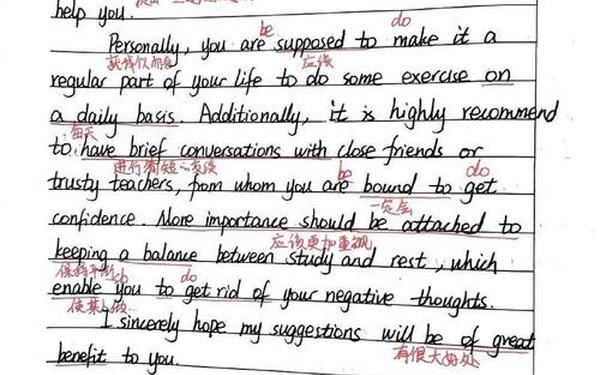 help you.
be do
Personally, you are supposed to make it a
应该
regular part of your life to do some exercise on
a daily basis. Additionally, it is highly recommend
每天
to have brief conversations with close friends or
进行简短的交谈
be do
trusty teachers, from whom you are bound to get
一定会
confidence. More importance should be attached to
应该更加重视
keeping a balance between study and rest, which
保持平衡
sb do
enable you to get rid of your negative thoughts.
使某人做
I sincerely hope my suggestions will be of great
有很大好处
benefit to you.